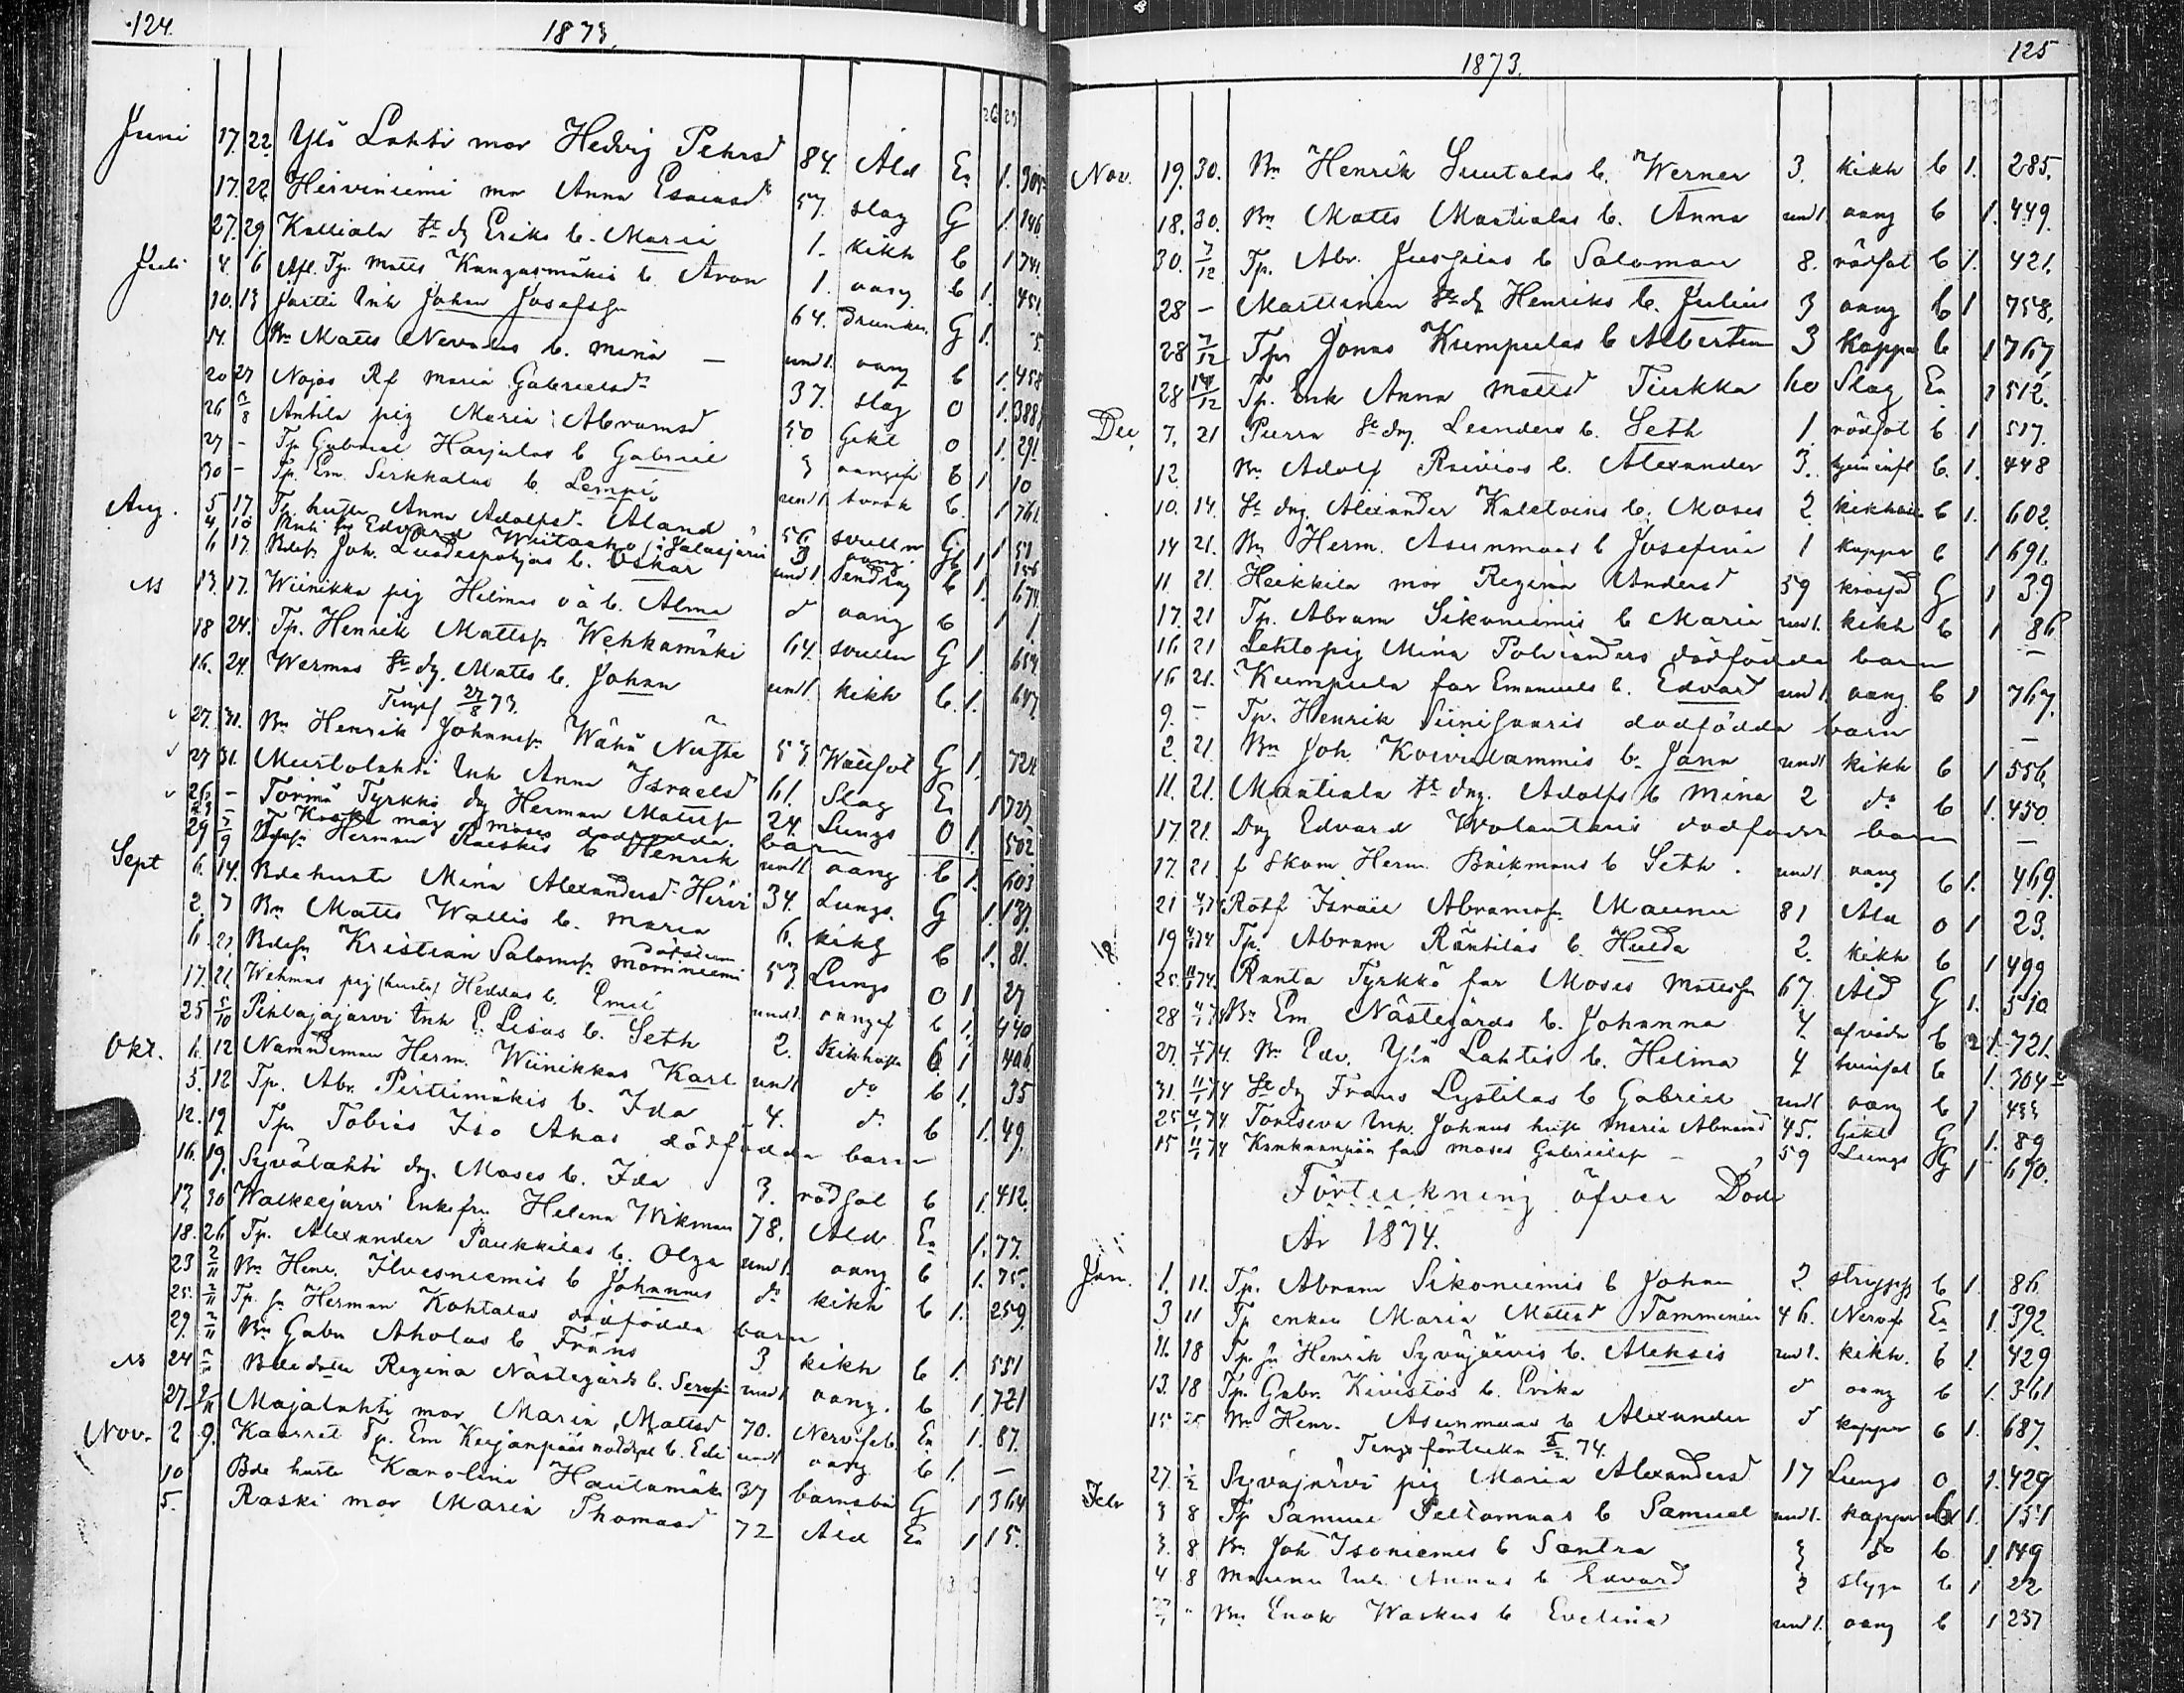 124.
1873.
Juni 17. 22. Ylä Lahti mor Hedvig Pehrsd 84. Ald En 1.
17. 22 Hirviniemi mor Anna Esaiasd 57. slag G 1. 146.
27. 29. Kalliala Eriks b. Maria 1. kikh b 1 741.
Juli 4. 6 Afl. Tp. Matts Kangasmäkis b Aron 1. aang b 1. 451.
10. 13 Inh Johan Josefss 64. drunkn. G 1. 5.
14. Bn Matts Nevalas b. Mina — und 1. aang b 1. 458
20 27 Nojas Rf Maria Gabrielsd 37. slag O 1. 388
26 3/8 Antila pig Maria Abramsd 50 Gikt O 1. 291.
27 - Tp Gabriel Harjulas b Gabriel 3 aangif b 1 10
30 - Tp. Em. Sirkkalas b. Lempi und 1. torsk b. 1 761
Aug. 5 17. Tp. hustr Anna Adolfsd Aland 56 svulln G 1 51
4. 10 Edvard Wiitaaho i Jalasjärvi aang
6 17. Bdess Joh. Luodespohjas b. Oskar und 1. b 1. 674
Ms 13. 17. Wiinikka pig Helmas oä b. Alma d aang b 1 1.
18 24. Tp. Henrik Mattss Wehkamäki 64. svulln G 1. 654.
16. 24. Wermas dg. Matts b. Johan und 1. kikh b. 1. 647.
Tingsf 27/8 73.
27. 31. Bn Henrik Johanss Wähä 53 G 1. 724
27 31. Mustolahti Inh Anna Israelsd 61. Slag En 1 727.
26 - Törmä Tyrkkö dg Herman Mattss 24. Lungs O 1. 502
mag Moses dödfödda barn
29 7/9 Herman Raiskis b Henrik und 1 aang b 1. 603
Sept 6. 14. Bdehustr Mina Alexandersd Hirvi 34. Lungs. G 1. 137.
2. 7 Bn Matts Wallis b. Maria 6. kikh b 1. 81.
6. 21. Bdess Kristian Salomss Morrinniemi 57. Lungs O 1 27
17. 21. Wehmas pig Heddas b. Emil und 1. aangif b 1. 440
25 5/10 Pihlajajärvi Inh E. Lisas b. Seth 2. Kikhosta b 1 406
Okt. 6. 12 Nämndeman Herm. Wiinikkas Karl und 1 do b 1. 35
5. 12 Tp. Abr. Pirttimäkis b. Ida 4. d. b 1. 49.
12. 19 Tp Tobias Iso Ahos dödfödda barn
16. 19. Syvälahti dg. Moses b. Ida 3. rödsot b 1. 412.
17. 30 Walkeejärvi Enkefru Helena Wikman 78. Ald En 1. 77.
18. 26 Tp. Alexander Paukkilas b. Olga und 1. aang b 1. 75.
23 2/11 Bn Henr. Ilvesniemis b Johannes do kikh b 1. 259.
25. 2/11 Tp. Herman Kohtalas dödfödda barn
29. 2/11 Bn Gabr Aholas b. Frans 3 kikh b 1. 551
Ms 24 Regina Nästegårds b. Serafi und 1 aang. b 1. 721
27. 2/11 Majalahti mor Maria Mattsd 70. Nervfeb. En 1. 87.
Nov. 2 9. Kaarret Tp. Em Kujanpääs b. Edi und 1 aang b 1. —
10 Bde hustr Karolina Hautamäki 37 barnsbö G 1 364
5. Raski mor Maria Thomasd 72 Ald En 1 15.
1873.
125
Nov. 19. 30. Bn Henrik Luutalas b. Werner 3. kikh b 1. 285.
18. 30. Bn Matts Mantialas b. Anna und 1. aang b 1. 449.
30. 7/12 Tp. Abr. Jussilas b Salomon 8. rödsot b 1. 421.
28 - Marttinen dg Henriks b. Julius 3 aang b 1 758.
28 7/12 Tp Jonas Kumpulas b Albertina 3 Koppor b 1 767
28 14/12 Tp. Enk Anna Mattsd Turkka 60 Slag En 1 512.
Dec 7. 21 Purra dg. Leanders b. Seth 1. rödsot b 1 517.
12. Bn Adolf Raivios b. Alexander 3. b. 1. 448
10. 14. dg. Alexander b. Moses 2. kikhost b 1. 602.
14 21. Bn Herm. Asunmaas b Josefina 1 koppor b 1 691.
11 21. Heikkila mor Regina Andersd 59 G 1 39
17. 21 Tp. Abram Sikoniemis b Maria und 1. kikh b 1 86
16 21 Lehto pig Mina Polvianders dödfödda barn —
16 21. Kumpula far Emanuels b. Edvard und 1. aang. b 1 767.
9. - Tp. Henrik Siinisaaris dödfödda barn —
2. 21. Bn Joh. Koivulammis b. Jana und 1 kikh b 1 556.
11. 21. Mantiala dg. Adolfs b Mina 2 do b 1. 450.
17. 21. Dg Edvard Wolantinis dödfödda barn —
17. 21. f Skom Herm. Bäckmans b Seth. und 1. aang b 1. 469.
21 4/1 74 Rotf Israel Abramss Maunu 81 Ald O 1 23.
19 4/1 74 Tp. Abram Räntiläs b. Hulda 2. kikh b 1 499
25. 11/1 74. Ranta Tyrkkö far Moses Mattss 67. Ald G 1. 510.
28 4/1 74 Bn Em. Nästegårds b. Johanna 4. b 2 1. 721.
27. 4/1 74. Bn Edv. Ylä Lahtis b. Helma 4 b 1. 304
31. 11/1 74 dg Frans Lystilas b Gabriel und 1 aang b 1 433
25 4/1 74. Inh. Johans hustr Maria Abramsd 45. Gikt G 1. 89
15 11/1 74 Kankaanpää far Moses Gabrielss — 59 Lungs G 1 670.
Förteckning öfver Döde
År 1874.
Jan. 1. 11. Tp. Abram Sikoniemis b Johan 2 strypsj b 1. 86
3 11 Tp enkan Maria Mattsd Tamminen 46. Nervf En 1. 392.
11. 18 Tp. Henrik Syväjärvis b. Aleksis und 1. kikh. b 1. 429
13. 18 Tp. Gabr. Kivistös b. Erika d aang b 1. 361
15 25 Bn Henr. Asunmaas b Alexander d koppor b 1. 687.
Tings förteckn 5/2 74.
27. 1/2 Syväjärvi pig Maria Alexandersd 17 Lungs O 1. 429
Febr 3 8 Tp Samuel Peltomaas b Samuel und 1. koppor b 1. 151
3. 8 Bn Joh Isoniemis b Santra 3 do b 1. 149
4 8 Maunu Inh. Annas b Edvard 2 b 1 22
Bn Enok Waskus b Evelina und 1. aang b 1 237